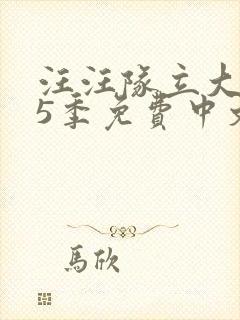 汪汪隊立大
5季免費中文
馬欣